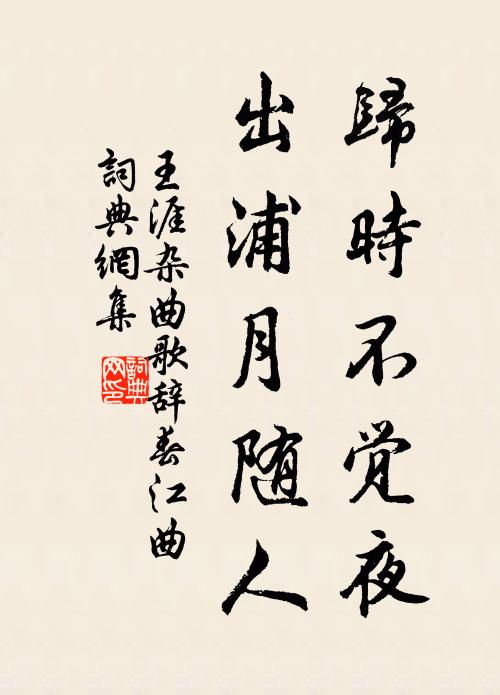 歸時不觉夜
出浦月随人
王涯杂曲歌辞春江曲
詞典網集
詞典网印